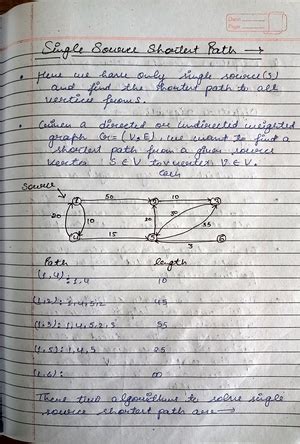 Single Source Shortest Path →
• Here we have only single source(s)
and find the shortest path to all
vertices from s.
• Given a directed or undirected weighted
graph G = (V, E), we want to find a
shortest path from a given source
vertex S ∈ V to vertex V ∈ V.
each
Source
50 10
20 10 20 30 35
15 3
Path length
(1,4) : 1,4 10
(1,2) : 1,4,5,2 45
(1,3) : 1,4,5,2,3 55
(1,5) : 1,4,5 25
(1,6) : ∞
These two algorithms to solve single
source shortest path are →